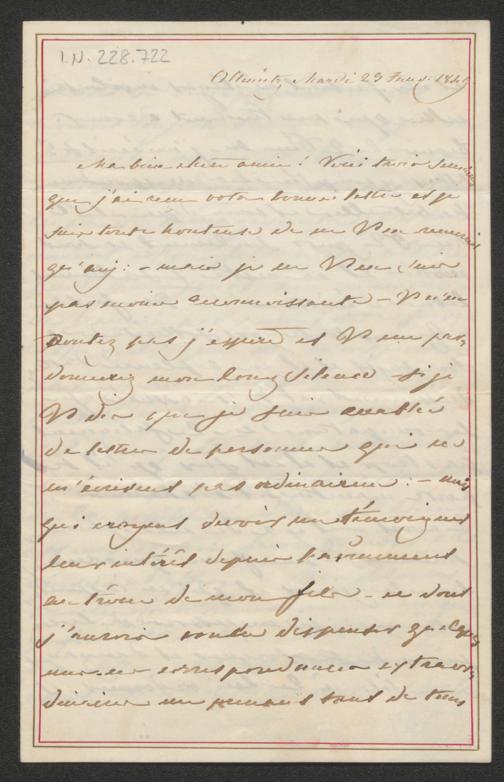 I.N. 228.722
Olmütz, Mardi 23 Janv. 1849
Ma bien chère amie! Voici trois semaines
que j'ai reçu votre bonne lettre et je
suis toute honteuse de ne V. en remercier
qu'auj: - mais je ne V. en suis
pas moins reconnoissante - V. n'en
doutez pas j'espère et V. me par-
donnerez mon long silence si je
V. dis que je suis accablée
de lettres de personnes qui ne
m'écrivent pas ordinairem: - mais
qui croyent devoir me témoigner
leur intérêt depuis l'avènement
au trône de mon fils - je dois
j'aurois voulu dispenser quelques
unes - ces correspondances extraor-
dinaires me prenant tant de tems